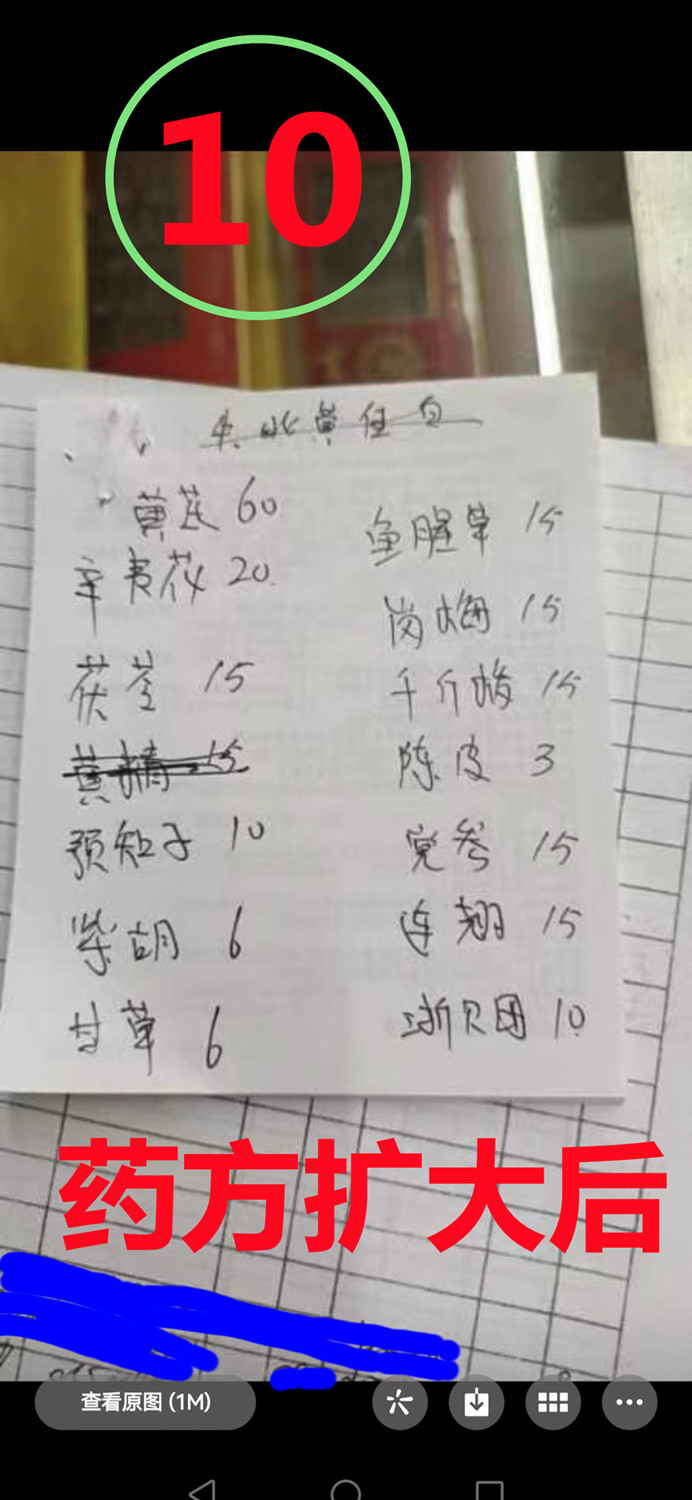 10
黄芪 60
辛夷花 20
茯苓 15
黄精 15
预知子 10
柴胡 6
甘草 6
鱼腥草 15
岗梅 15
千斤拔 15
陈皮 3
党参 15
连翘 15
浙贝 10
药方扩大后
查看原图 (1M)